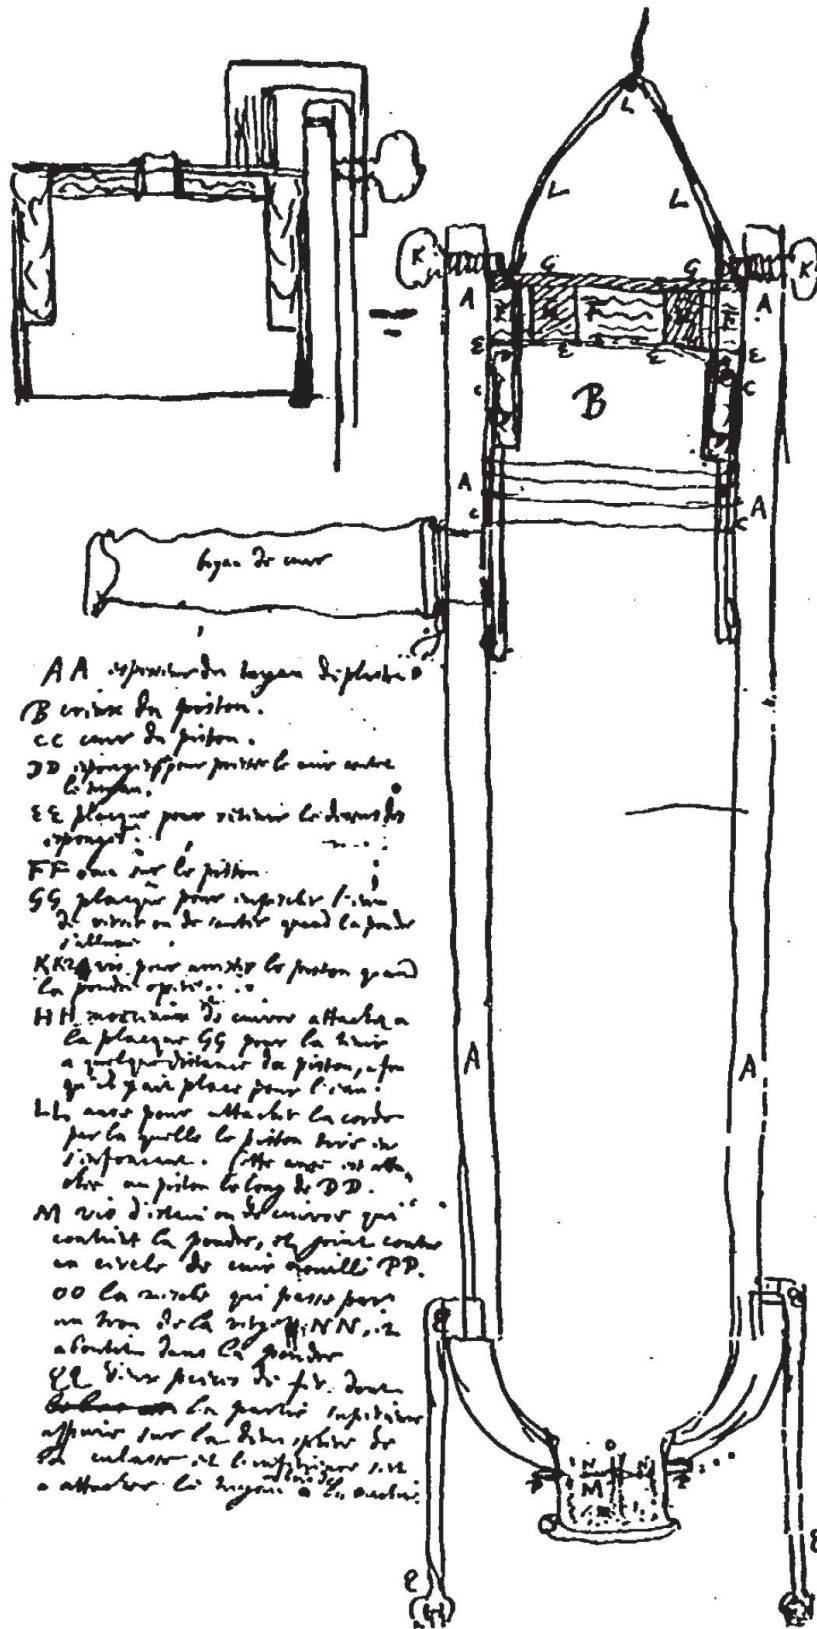 L
L L
K G G K
A F H F H F A
E E E E
D D
C C
B
A A
C C
boyau de cuir
AA espesseur du tuyau
B creux du piston.
CC cuir du piston.
DD esponges pour presser le cuir contre
le tuyau.
EE placque pour retenir le dessus des
esponges.
FF eau sur le piston
GG placque pour empescher l'eau
de verser ou de sauter quand la poudre
s'allume
KK 2 vis pour arrester le piston quand
la poudre opere
HH morceaux de cuivre attachez a
la placque GG pour la tenir
a quelque distance du piston, afin
qu'il y ait place pour l'eau.
LL anse pour attacher la corde
par la quelle le piston tire en
s'enfonçant. Cette anse est atta
chee au piston le long de DD.
M vis d'estain ou de cuivre qui
contient la poudre, et joint contre
un circle de cuir mouillè PP.
OO la mesche qui passe par
un trou de la NN, et
aboutit dans la poudre
QQ deux pieces de fer dont
la partie superieure
appuie sur la de
la culasse et l'inferieure sert
a attacher le tuyau a
A A
Q
O
N N
P M P
Q Q